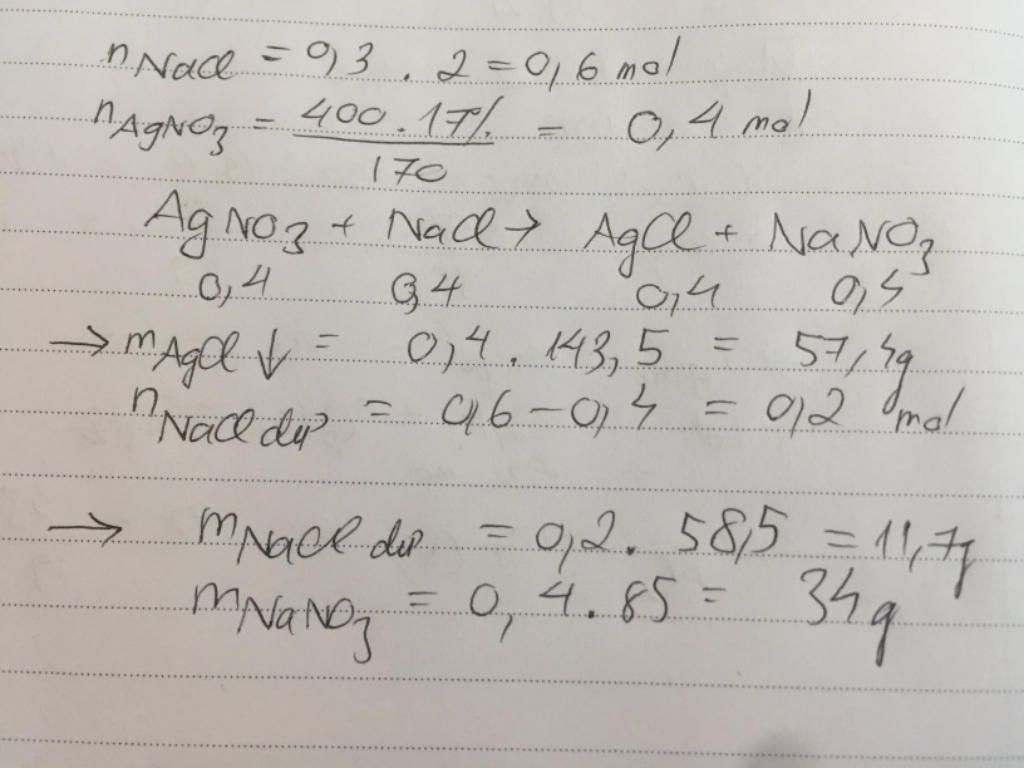 nNaCl = 0,3 . 2 = 0,6 mol
nAgNO3 = 400 . 17% / 170 = 0,4 mol
AgNO3 + NaCl → AgCl + NaNO3
0,4 0,4 0,4 0,4
→ mAgCl ↓ = 0,4 . 143,5 = 57,4g
nNaCl dư = 0,6 – 0,4 = 0,2 mol
→ mNaCl dư = 0,2 . 58,5 = 11,7g
mNaNO3 = 0,4 . 85 = 34g